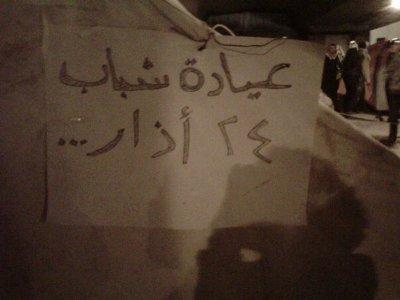 عيادة شباب
٢٤ أذار...